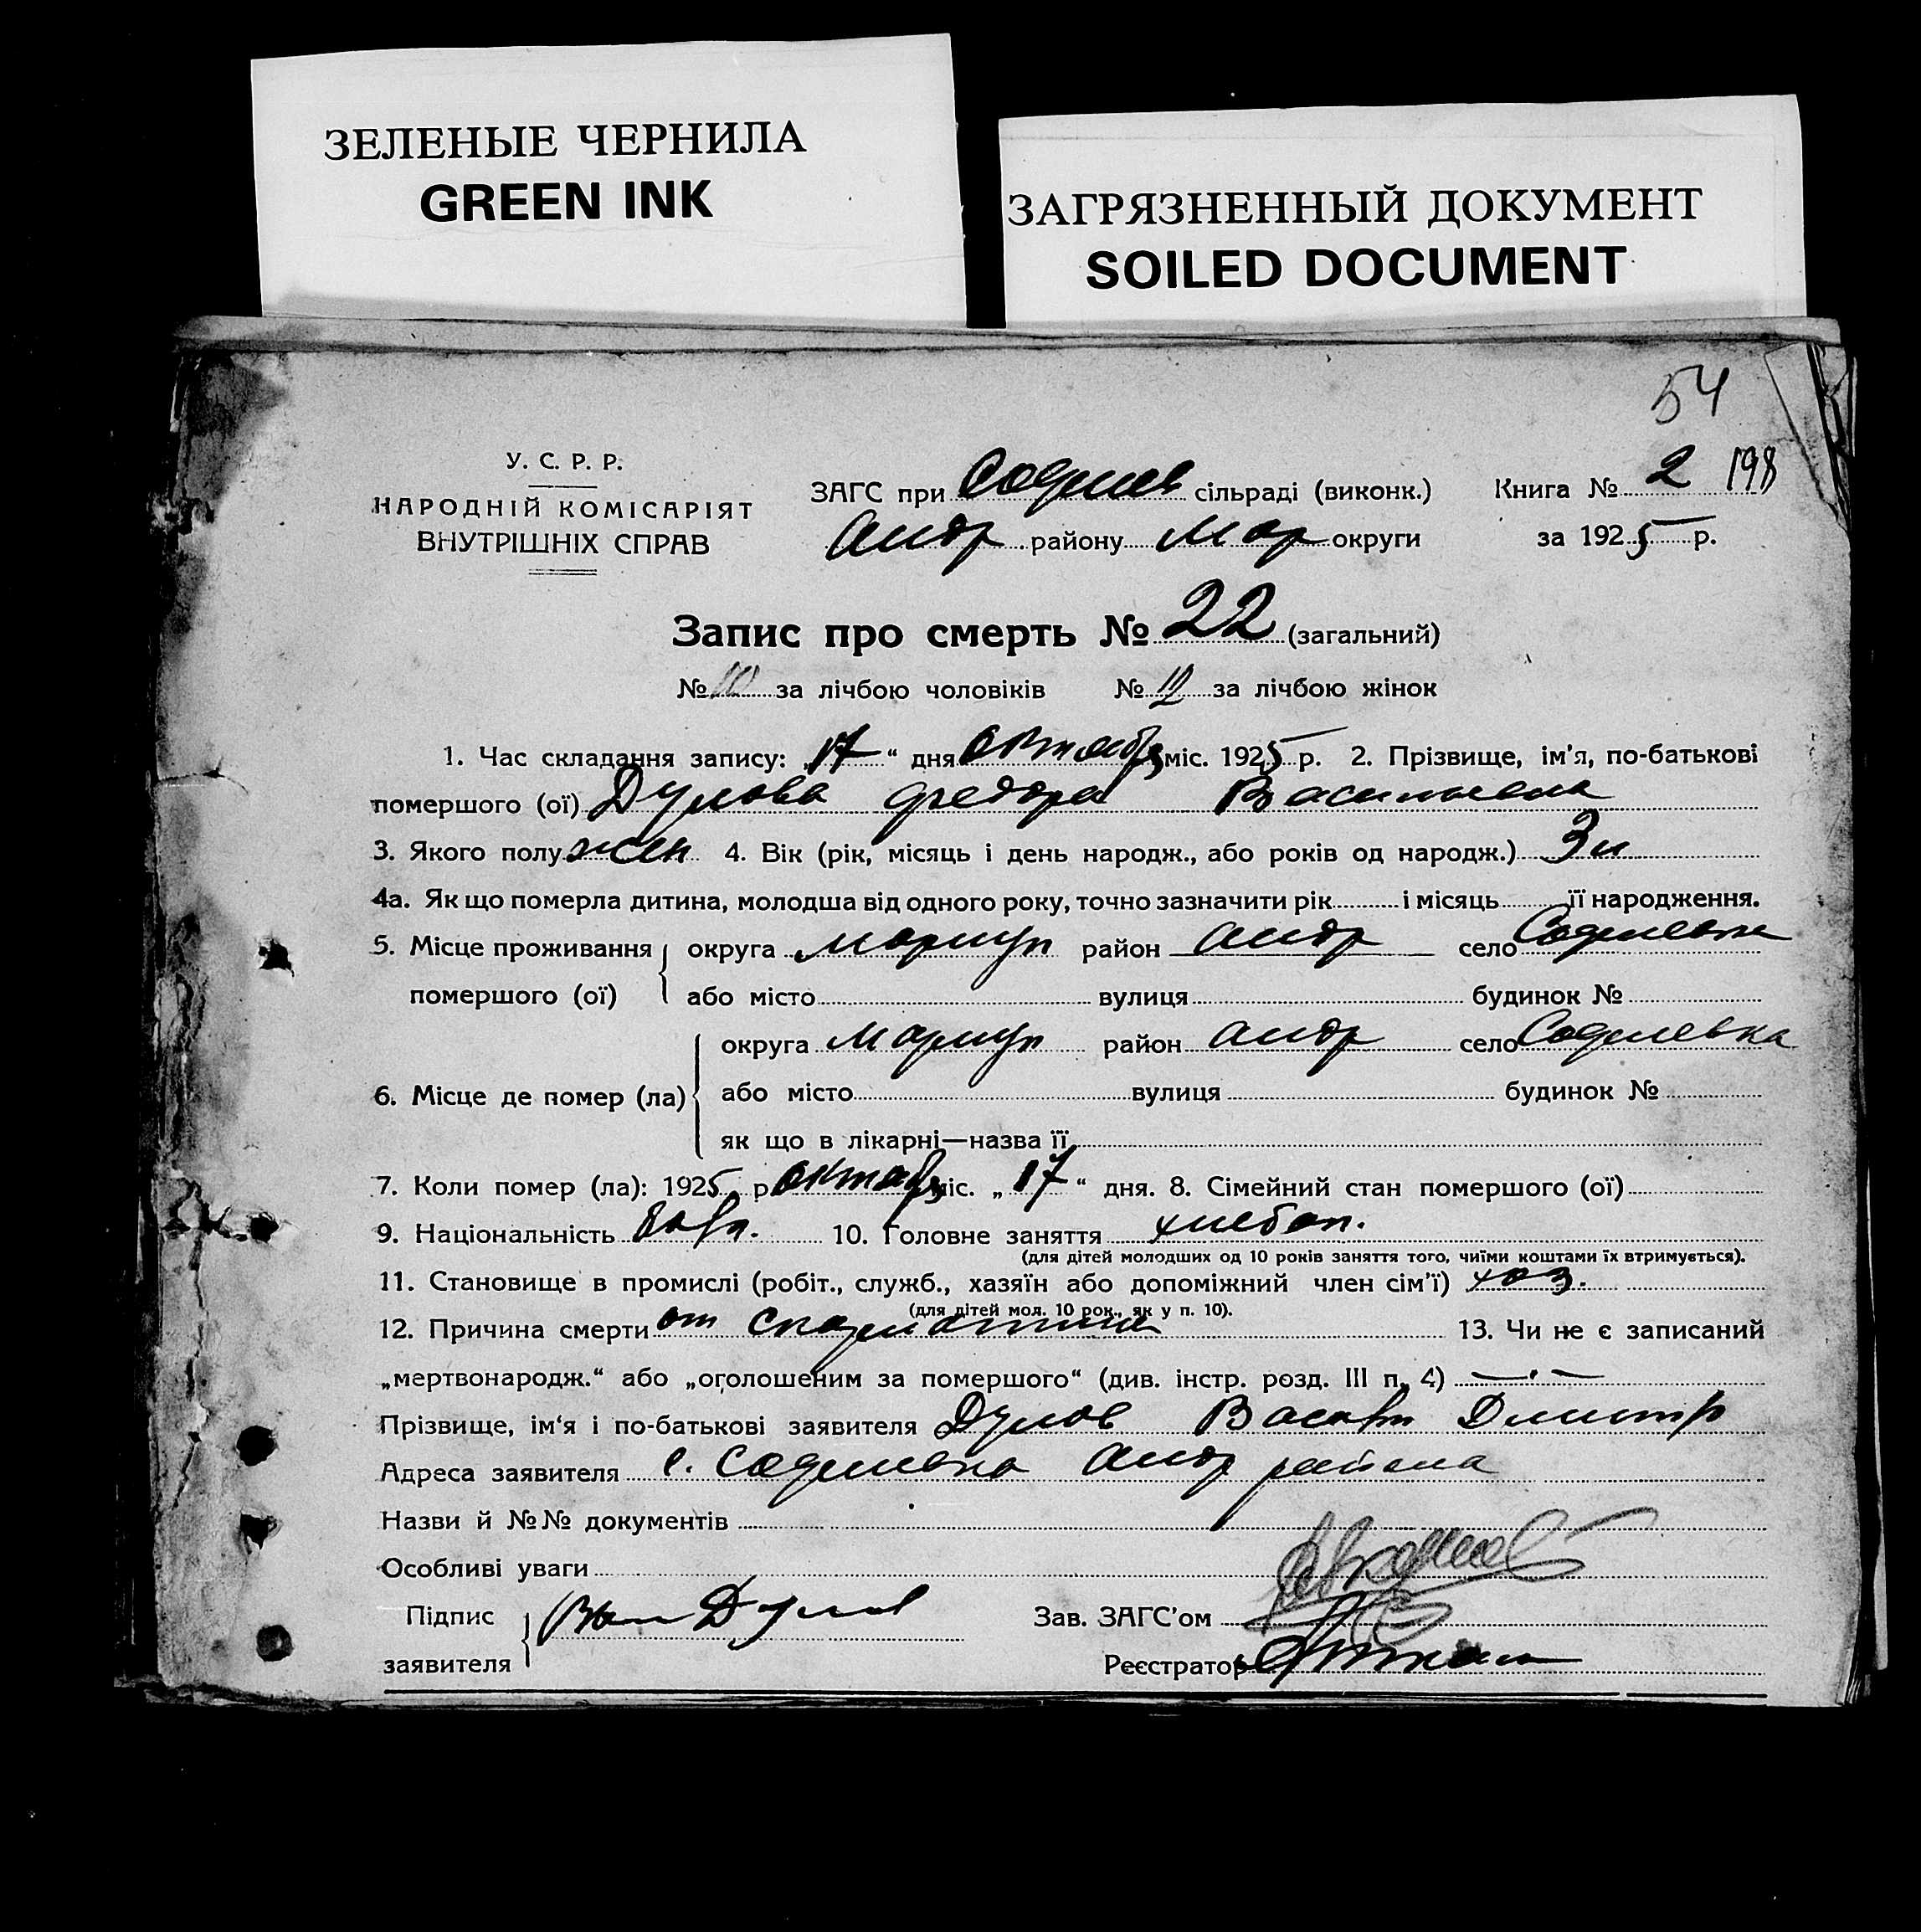 ЗЕЛЕНЫЕ ЧЕРНИЛА
GREEN INK
ЗАГРЯЗНЕННЫЙ ДОКУМЕНТ
SOILED DOCUMENT
54
У. С. Р. Р.
НАРОДНІЙ КОМІСАРІЯТ
ВНУТРІШНІХ СПРАВ
ЗАГС при сільраді (виконк.)
Андр району Мар округи
Книга № 2 198
за 1925 р.
Запис про смерть № 22 (загальний)
№ 10 за лічбою чоловіків № 12 за лічбою жінок
1. Час складання запису: „17“ дня октября міс. 1925 р. 2. Прізвище, ім'я, по-батькові
помершого (ої) Дулова Федора Васильевна
3. Якого полу жен 4. Вік (рік, місяць і день народж., або років од народж.) 3
4а. Як що померла дитина, молодша від одного року, точно зазначити рік і місяць її народження.
5. Місце проживання округа Мариуп район Андр село
помершого (ої) або місто вулиця будинок №
округа Мариуп район Андр село
6. Місце де помер (ла) або місто вулиця будинок №
як що в лікарні—назва її
7. Коли помер (ла): 1925 р октября міс. „17“ дня. 8. Сімейний стан помершого (ої)
9. Національність 10. Головне заняття хлебоп.
(для дітей молодших од 10 років заняття того, чиїми коштами їх втримується).
11. Становище в промислі (робіт., служб., хазяїн або допоміжний член сім'ї) хоз.
(для дітей мол. 10 рок., як у п. 10).
12. Причина смерти от скарлатины 13. Чи не є записаний
„мертвонародж.“ або „оголошеним за помершого“ (див. інстр. розд. III п. 4) —·—
Прізвище, ім'я і по-батькові заявителя Дулов Дмитр
Адреса заявителя с. Андр района
Назви й №№ документів
Особливі уваги
Підпис Дулов
заявителя
Зав. ЗАГС'ом
Реєстратор